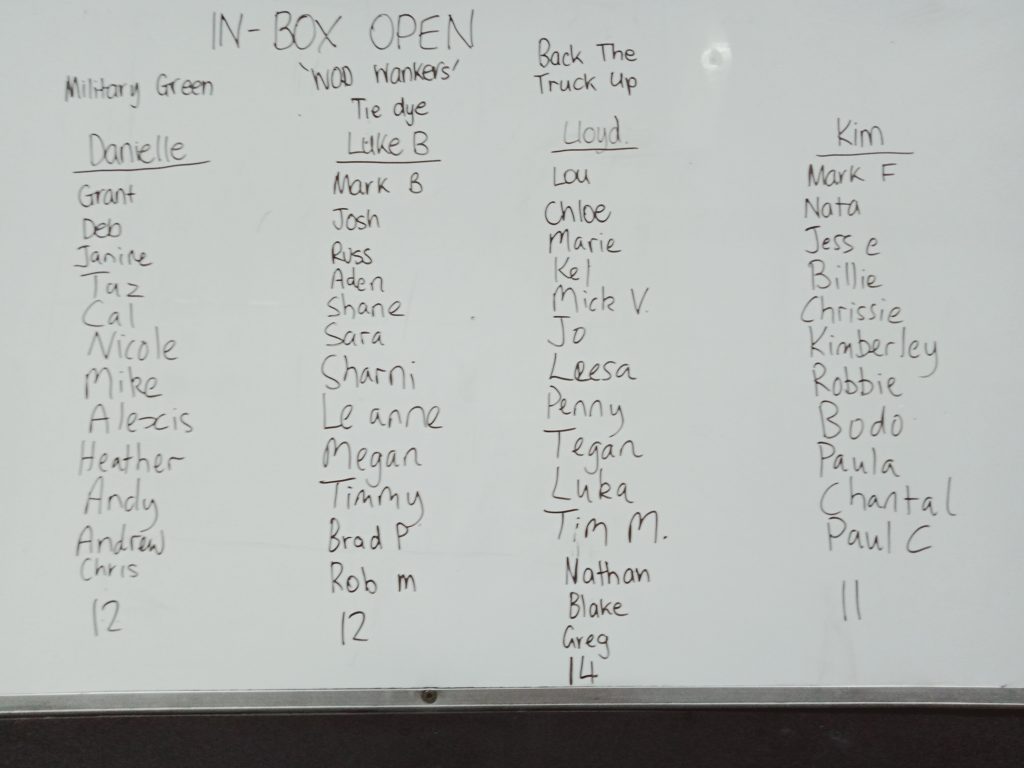 IN-BOX OPEN
Military Green
Danielle
Grant
Deb
Janine
Taz
Cal
Nicole
Mike
Alexis
Heather
Andy
Andrew
Chris
12
'WOD Wankers'
Tie dye
Luke B
Mark B
Josh
Russ
Aden
Shane
Sara
Sharni
Leanne
Megan
Timmy
Brad P
Rob m
12
Back The
Truck Up
Lloyd.
Lou
Chloe
Marie
Kel
Mick V.
Jo
Leesa
Penny
Tegan
Luka
Tim M.
Nathan
Blake
Greg
14
Kim
Mark F
Nata
Jesse
Billie
Chrissie
Kimberley
Robbie
Bodo
Paula
Chantal
Paul C
11